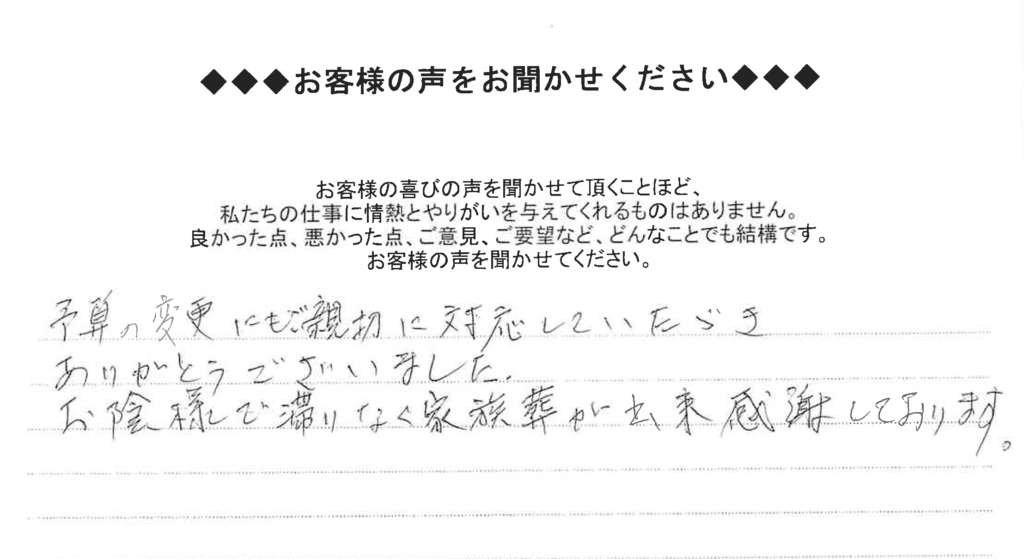 ◆◆◆お客様の声をお聞かせください◆◆◆
お客様の喜びの声を聞かせて頂くことほど、
私たちの仕事に情熱とやりがいを与えてくれるものはありません。
良かった点、悪かった点、ご意見、ご要望など、どんなことでも結構です。
お客様の声を聞かせてください。
予算の変更にもご親切に対応していただき
ありがとうございました.
お陰様で滞りなく家族葬が出来感謝しております。